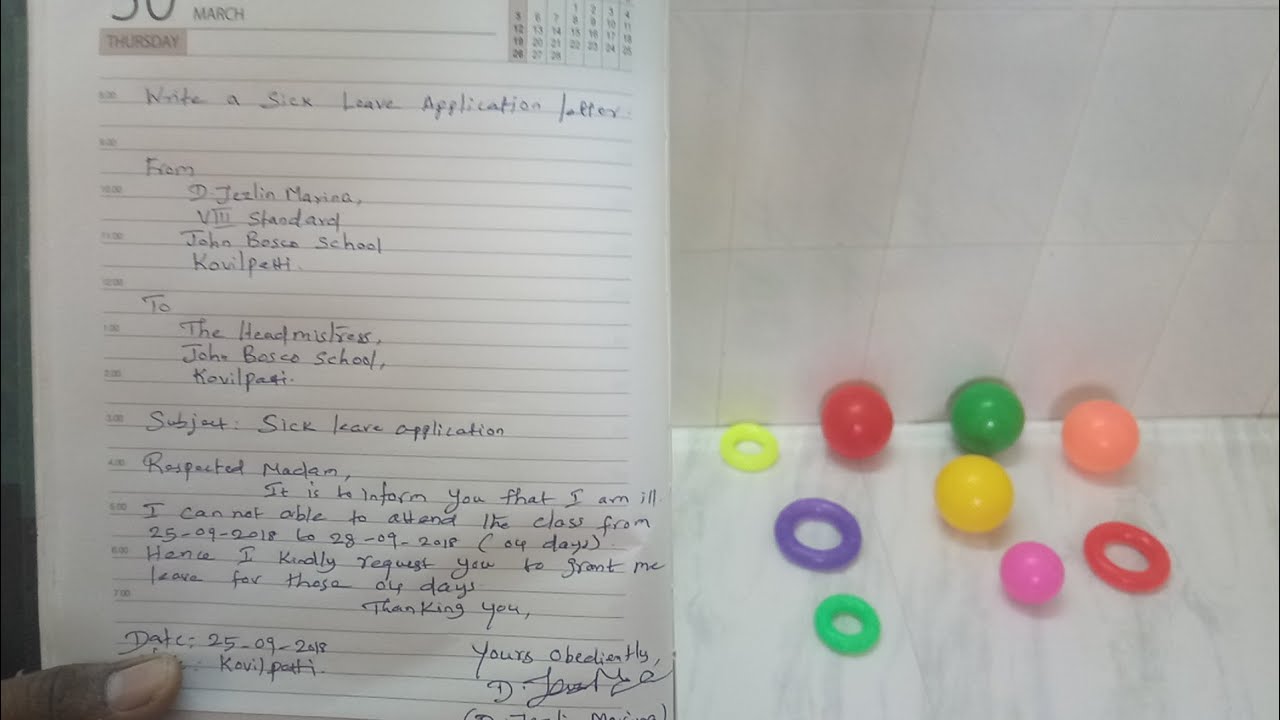 30 MARCH
THURSDAY
1 2 3 4
5 6 7 8 9 10 11
12 13 14 15 16 17 18
19 20 21 22 23 24 25
26 27 28
8:00 Write a Sick Leave Application letter.
9:00
From
10:00 D. Jezlin Marina,
VIII Standard
11:00 John Bosco School
Kovilpatti.
12:00
To
1:00 The Headmistress,
John Bosco School,
2:00 Kovilpatti.
3:00 Subject: Sick leave application
4:00 Respected Madam,
It is to inform you that I am ill.
5:00 I can not able to attend the class from
25-09-2018 to 28-09-2018 (04 days).
6:00 Hence I kindly request you to grant me
leave for those 04 days
7:00 Thanking you,
Date: 25-09-2018 Yours obediently,
Kovilpatti.
D.
(D. Jezlin Marina)